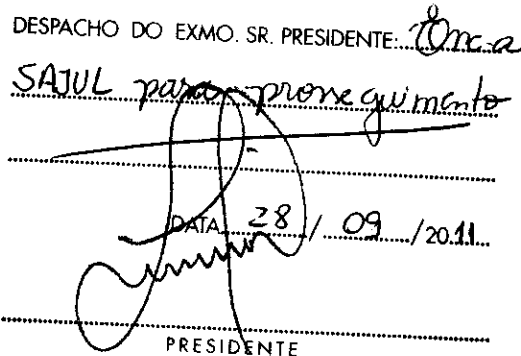 DESPACHO DO EXMO. SR. PRESIDENTE: Enc. a
SAJUL para prosseguimento
DATA 28 / 09 / 2011
PRESIDENTE